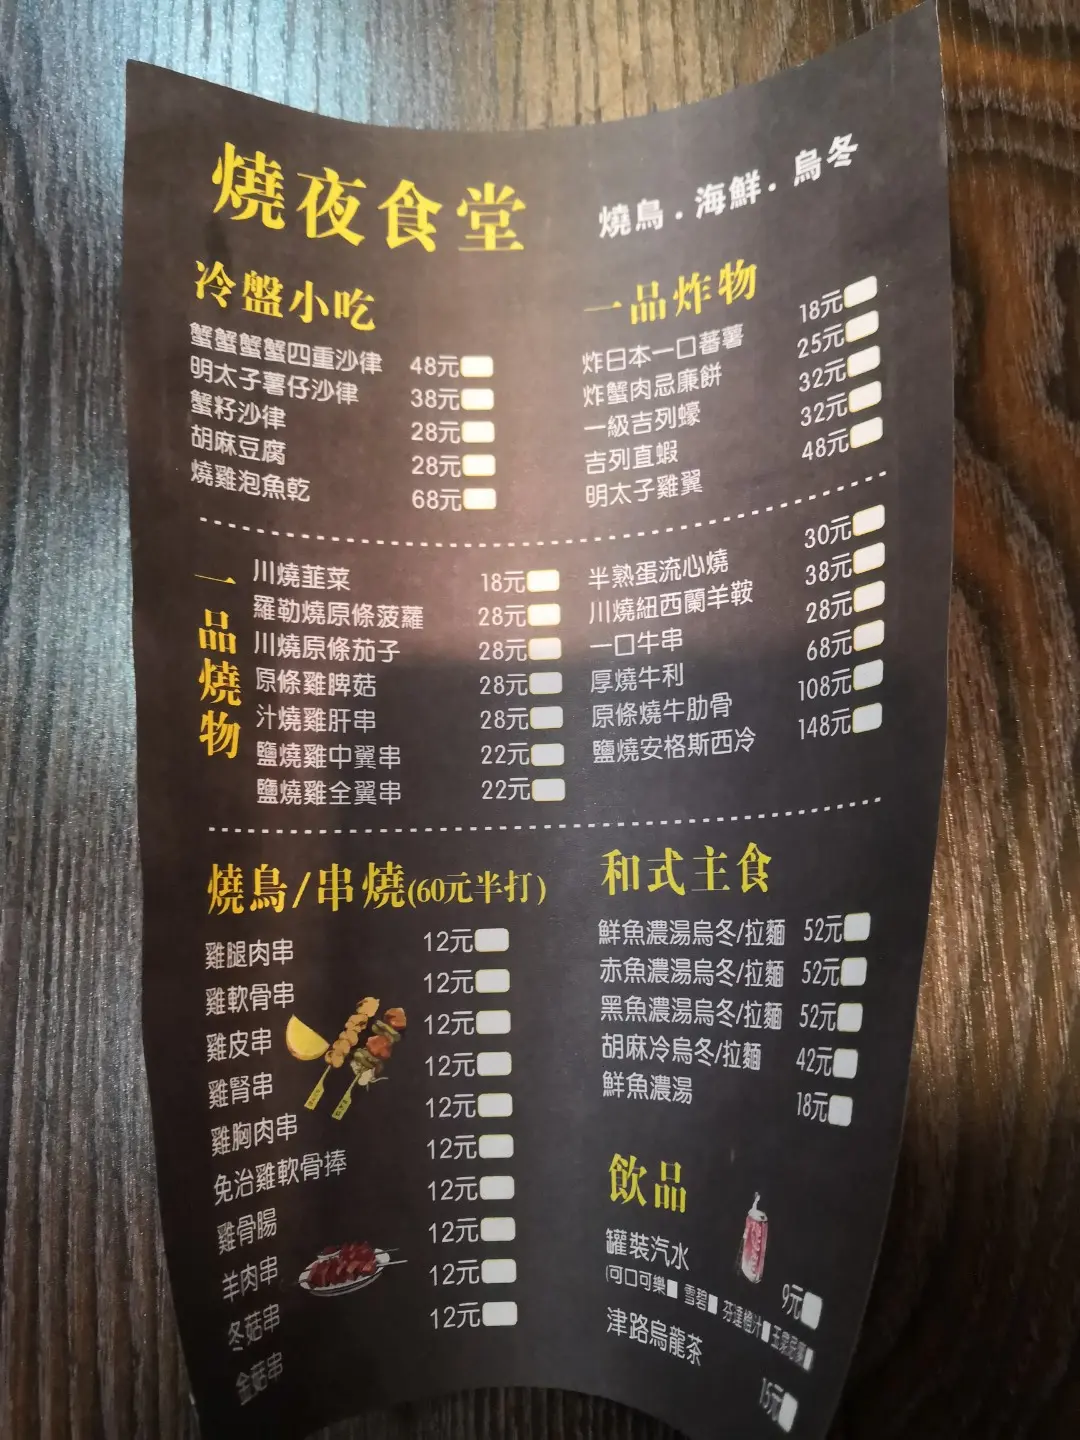 燒夜食堂
燒鳥．海鮮．烏冬
冷盤小吃
蟹蟹蟹蟹四重沙律 48元
明太子薯仔沙律 38元
蟹籽沙律 28元
胡麻豆腐 28元
燒雞泡魚乾 68元
一品炸物
炸日本一口蕃薯 18元
炸蟹肉忌廉餅 25元
一級吉列蠔 32元
吉列直蝦 32元
明太子雞翼 48元
一品燒物
川燒韮菜 18元
羅勒燒原條菠蘿 28元
川燒原條茄子 28元
原條雞脾菇 28元
汁燒雞肝串 28元
鹽燒雞中翼串 22元
鹽燒雞全翼串 22元
半熟蛋流心燒 30元
川燒紐西蘭羊鞍 38元
一口牛串 28元
厚燒牛利 68元
原條燒牛肋骨 108元
鹽燒安格斯西冷 148元
燒鳥/串燒(60元半打)
雞腿肉串 12元
雞軟骨串 12元
雞皮串 12元
雞腎串 12元
雞胸肉串 12元
免治雞軟骨捧 12元
雞骨腸 12元
羊肉串 12元
冬菇串 12元
金菇串 12元
和式主食
鮮魚濃湯烏冬/拉麵 52元
赤魚濃湯烏冬/拉麵 52元
黑魚濃湯烏冬/拉麵 52元
胡麻冷烏冬/拉麵 42元
鮮魚濃湯 18元
飲品
罐裝汽水 9元
(可口可樂 雪碧 芬達橙汁
津路烏龍茶 15元